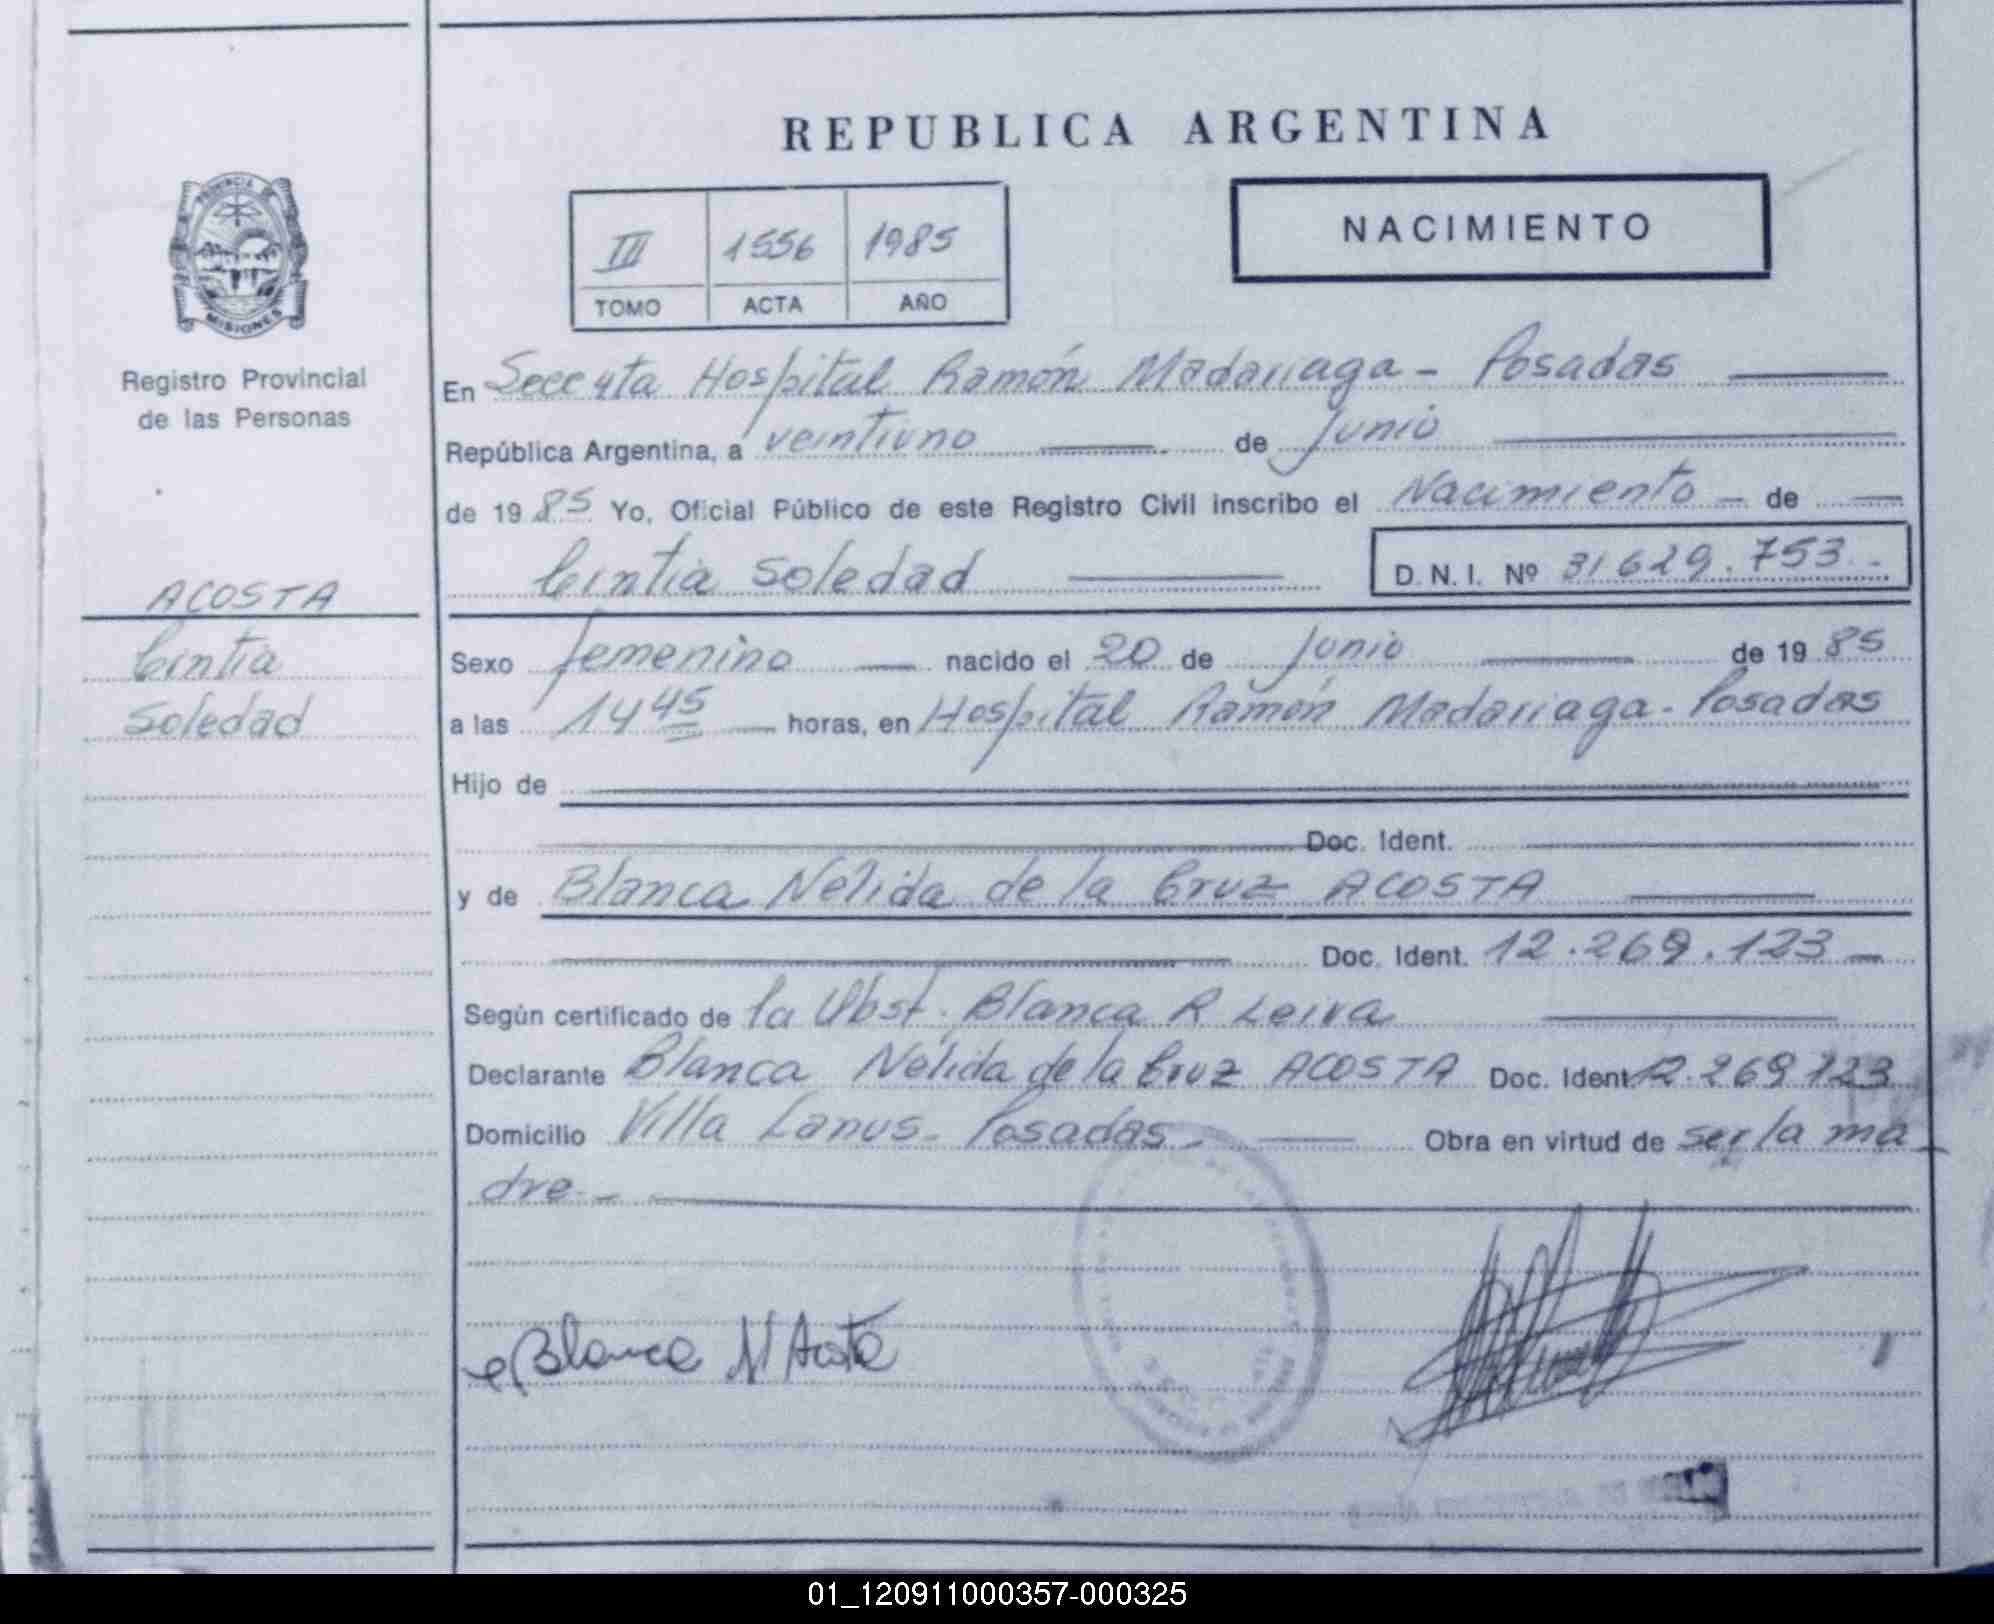 REPUBLICA ARGENTINA
NACIMIENTO
III 1556 1985
TOMO ACTA AÑO
PROVINCIA DE
MISIONES
Registro Provincial
de las Personas
En Secc 4ta Hospital Ramón Madariaga - Posadas
República Argentina, a veintiuno de Junio
de 1985 Yo, Oficial Público de este Registro Civil inscribo el Nacimiento - de
Cintia Soledad D.N.I. Nº 31629.753.-
ACOSTA
Cintia
Soledad
Sexo femenino nacido el 20 de Junio de 1985
a las 14 45 horas, en Hospital Ramón Madariaga - Posadas
Hijo de
Doc. Ident.
y de Blanca Nélida de la Cruz ACOSTA
Doc. Ident. 12.269.123
Según certificado de la Obst. Blanca R Leiva
Declarante Blanca Nélida de la Cruz ACOSTA Doc. Ident 12.269.123
Domicilio Villa Lanus - Posadas - Obra en virtud de ser la ma
dre -
Blanca N Acosta
01_120911000357-000325